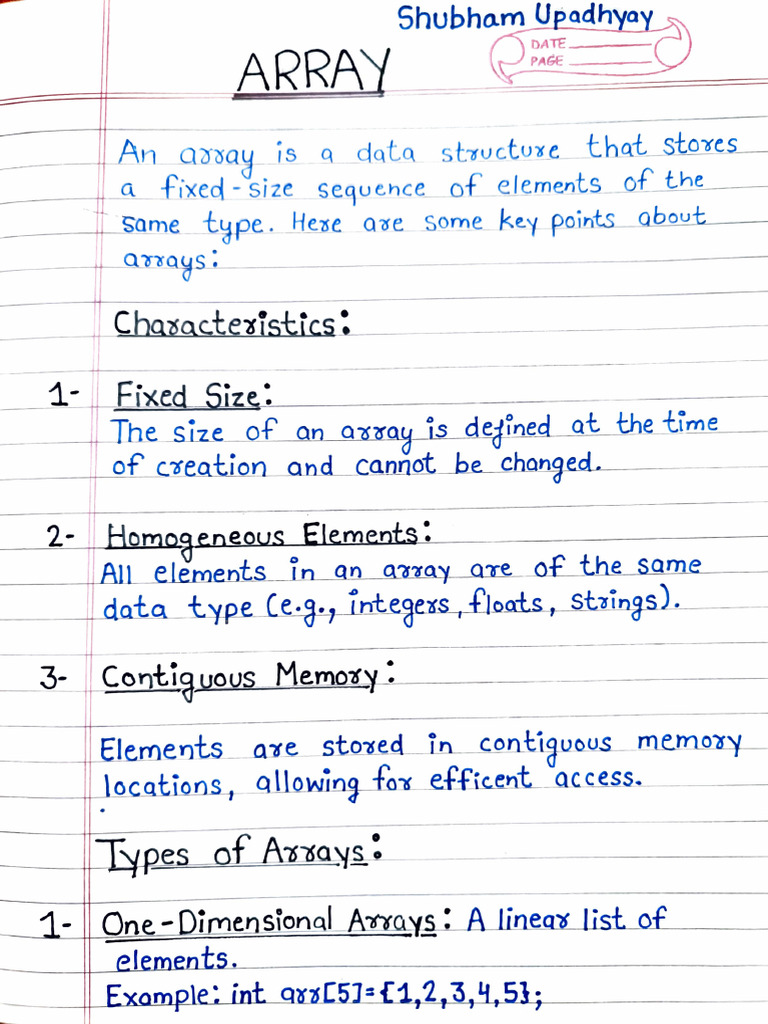 Shubham Upadhyay
DATE
PAGE
ARRAY
An array is a data structure that stores
a fixed-size sequence of elements of the
same type. Here are some key points about
arrays:
Characteristics:
1- Fixed Size:
The size of an array is defined at the time
of creation and cannot be changed.
2- Homogeneous Elements:
All elements in an array are of the same
data type (e.g., integers, floats, strings).
3- Contiguous Memory:
Elements are stored in contiguous memory
locations, allowing for efficent access.
Types of Arrays:
1- One-Dimensional Arrays: A linear list of
elements.
Example: int arr[5]={1,2,3,4,5};